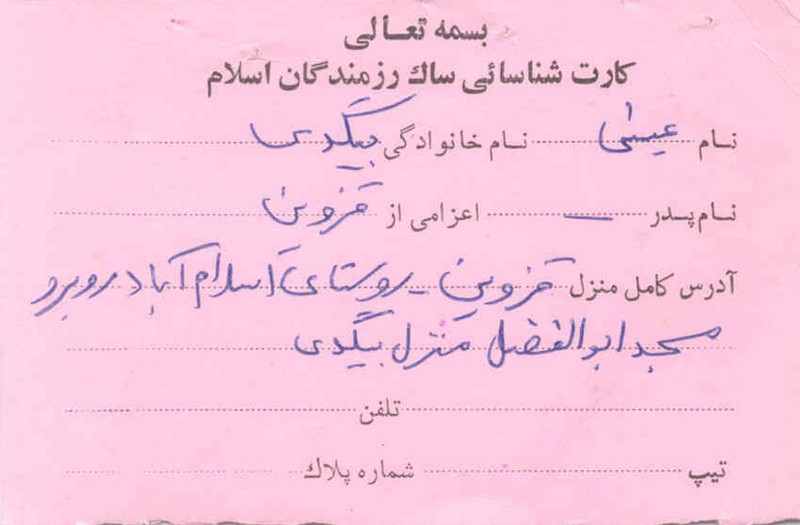 بسمه تعالی
کارت شناسائی ساک رزمندگان اسلام
نام عیسی نام خانوادگی بیگدی
نام پدر — اعزامی از قزوین
آدرس کامل منزل قزوین - روستای اسلام آباد روبرو
مسجد ابوالفضل منزل بیگدی
تلفن
تیپ شماره پلاک